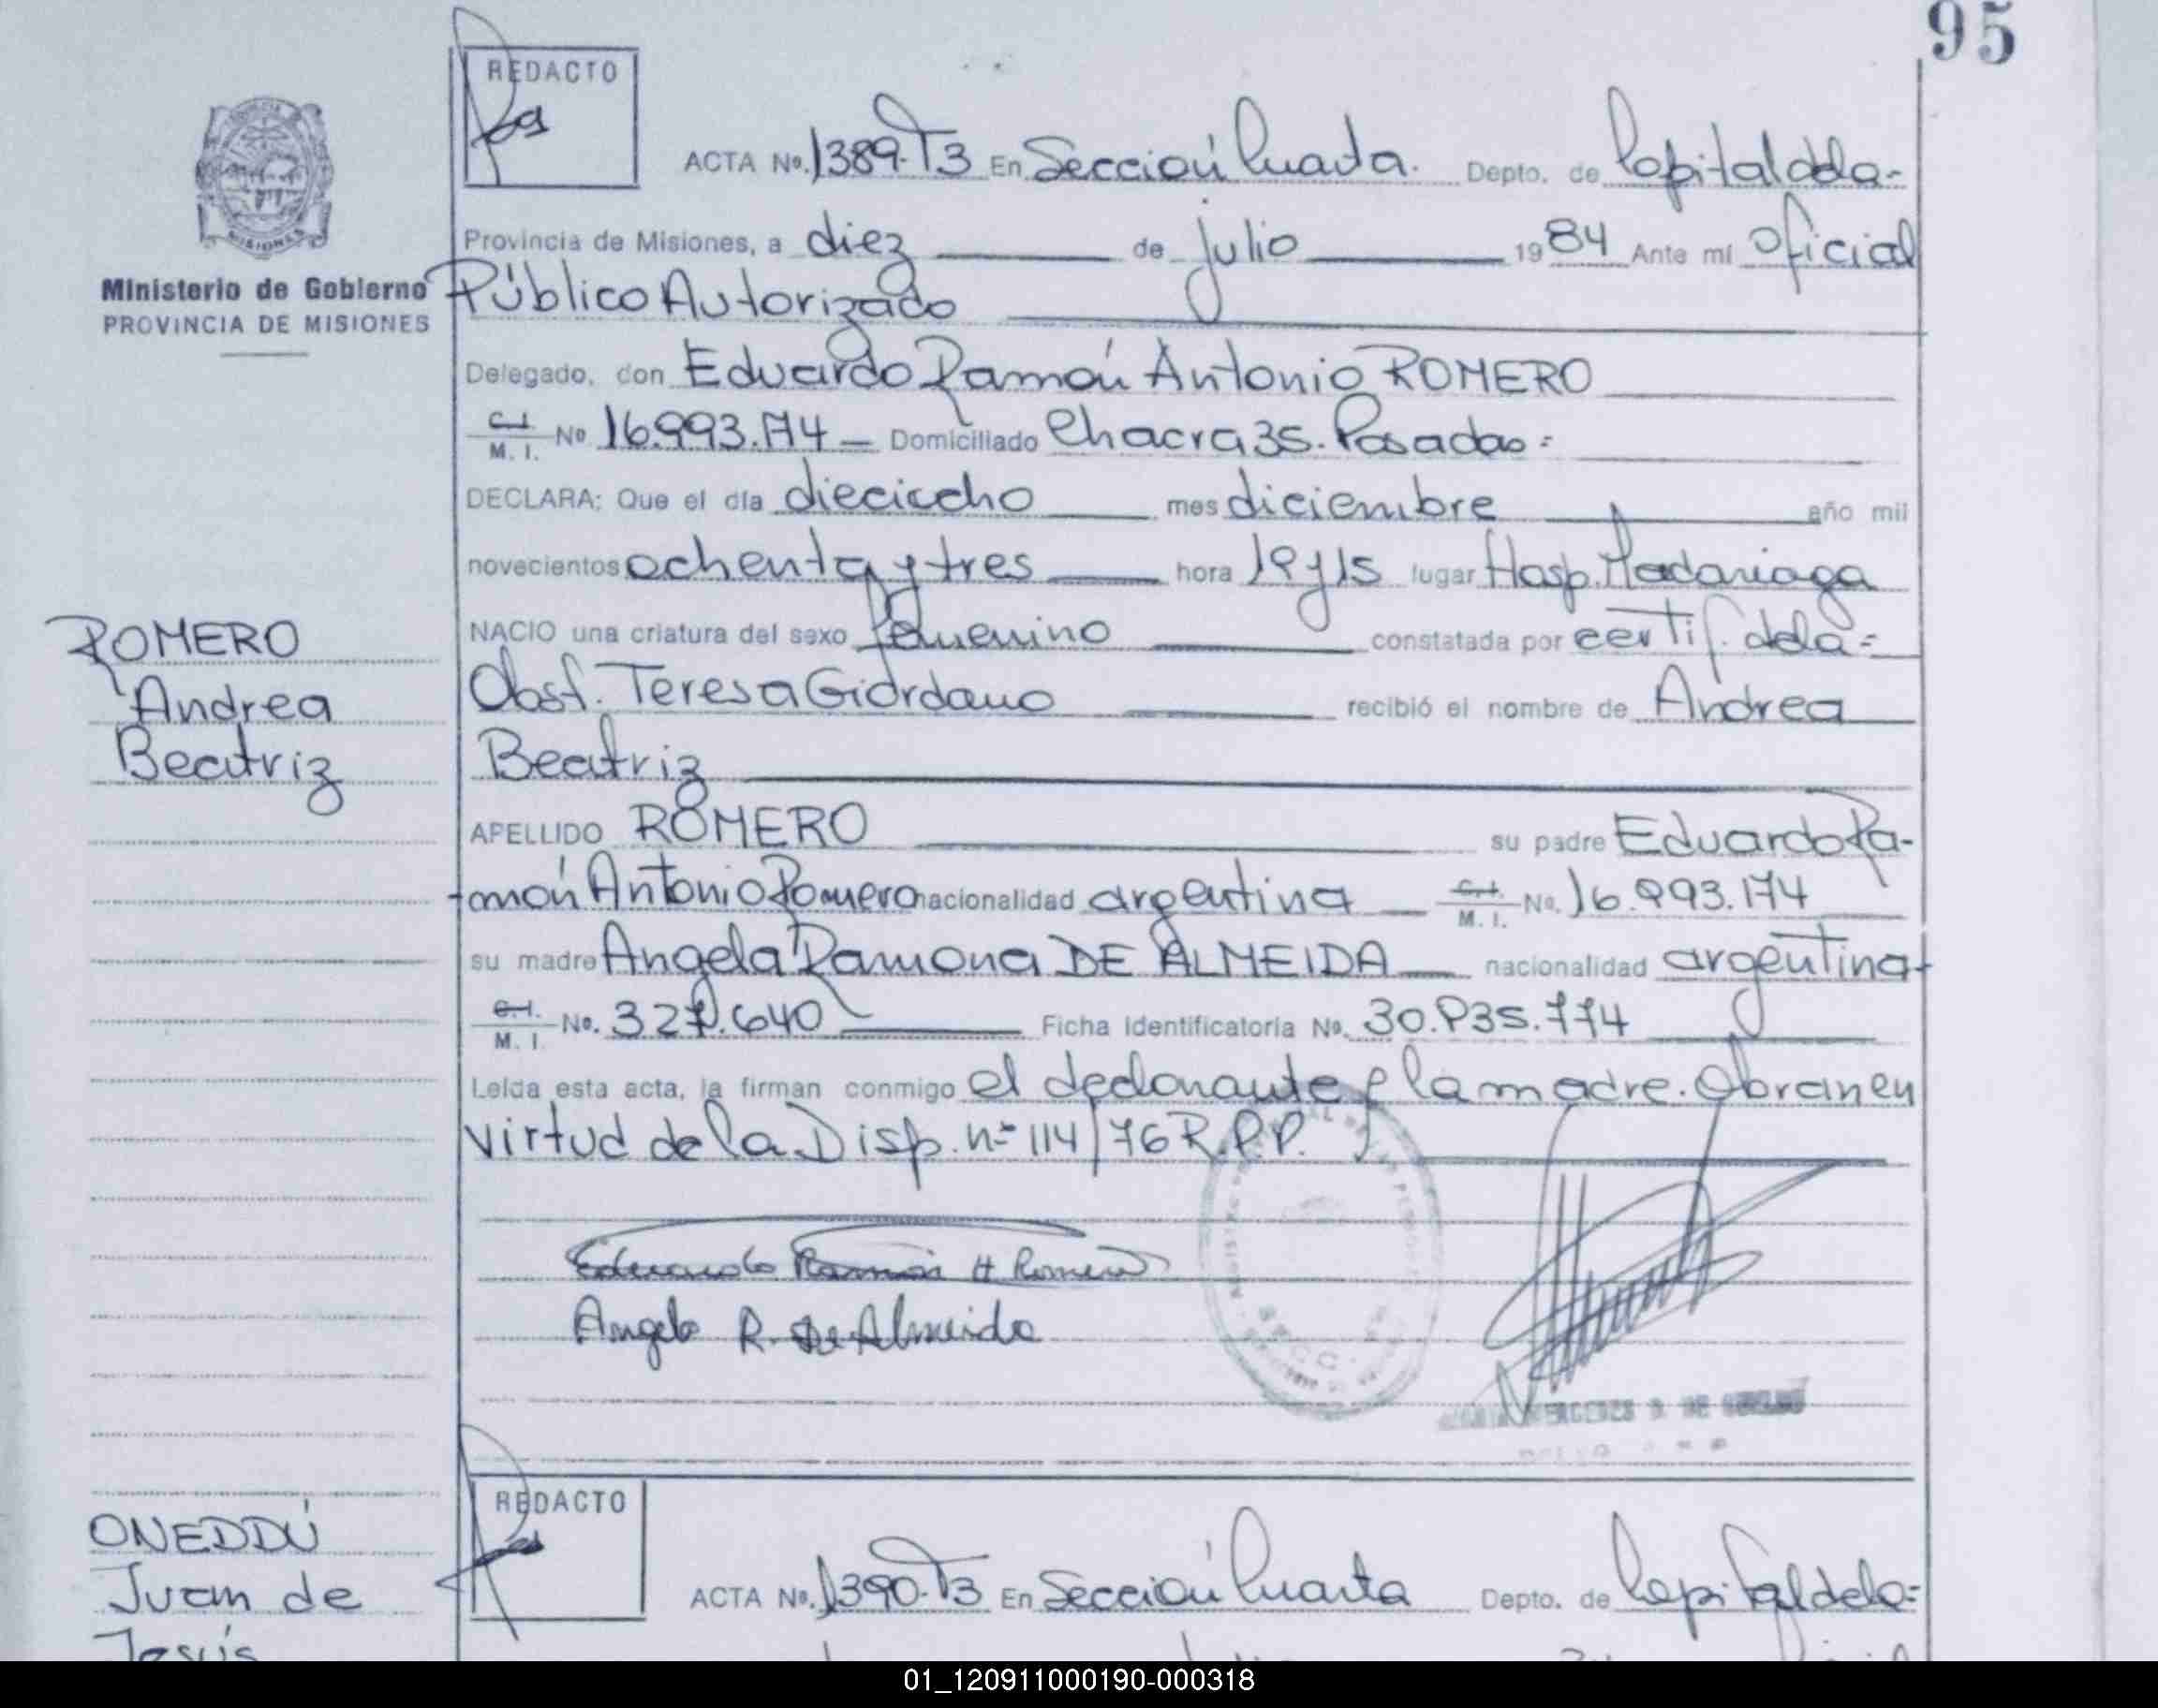 95
REDACTO
ACTA Nº. 1389-T3 En Sección Cuarta. Depto. de Capital de la-
Provincia de Misiones, a diez de julio 1984 Ante mí Oficial
Ministerio de Gobierno
PROVINCIA DE MISIONES
Público Autorizado
Delegado, don Eduardo Ramón Antonio ROMERO
C.I. M. I. Nº 16.993.174 Domiciliado Chacra 35. Posadas=
DECLARA: Que el día dieciocho mes diciembre año mil
novecientos ochenta y tres hora 19y15 lugar Hosp. Madariaga
ROMERO
Andrea
Beatriz
NACIO una criatura del sexo femenino constatada por certif. dela=
Obst. Teresa Giordano recibió el nombre de Andrea
Beatriz
APELLIDO ROMERO su padre Eduardo Ra-
-món Antonio Romero nacionalidad argentina C.I. M. I. Nº. 16.993.174
su madre Angela Ramona DE ALMEIDA nacionalidad argentina-
C.I. M. I. Nº. .640 Ficha Identificatoria Nº. 30.
Leída esta acta, la firman conmigo el declarante e la madre. Obran en
virtud de la Disp. nº 114/76 R.P.P.
Eduardo Ramón A Romero
Angela R. De Almeida
MERCEDES DE
ONEDDÚ
Juan de
Jesús
REDACTO
ACTA Nº. 1390-T3 En Sección Cuarta Depto. de Capital dela=
01_120911000190-000318